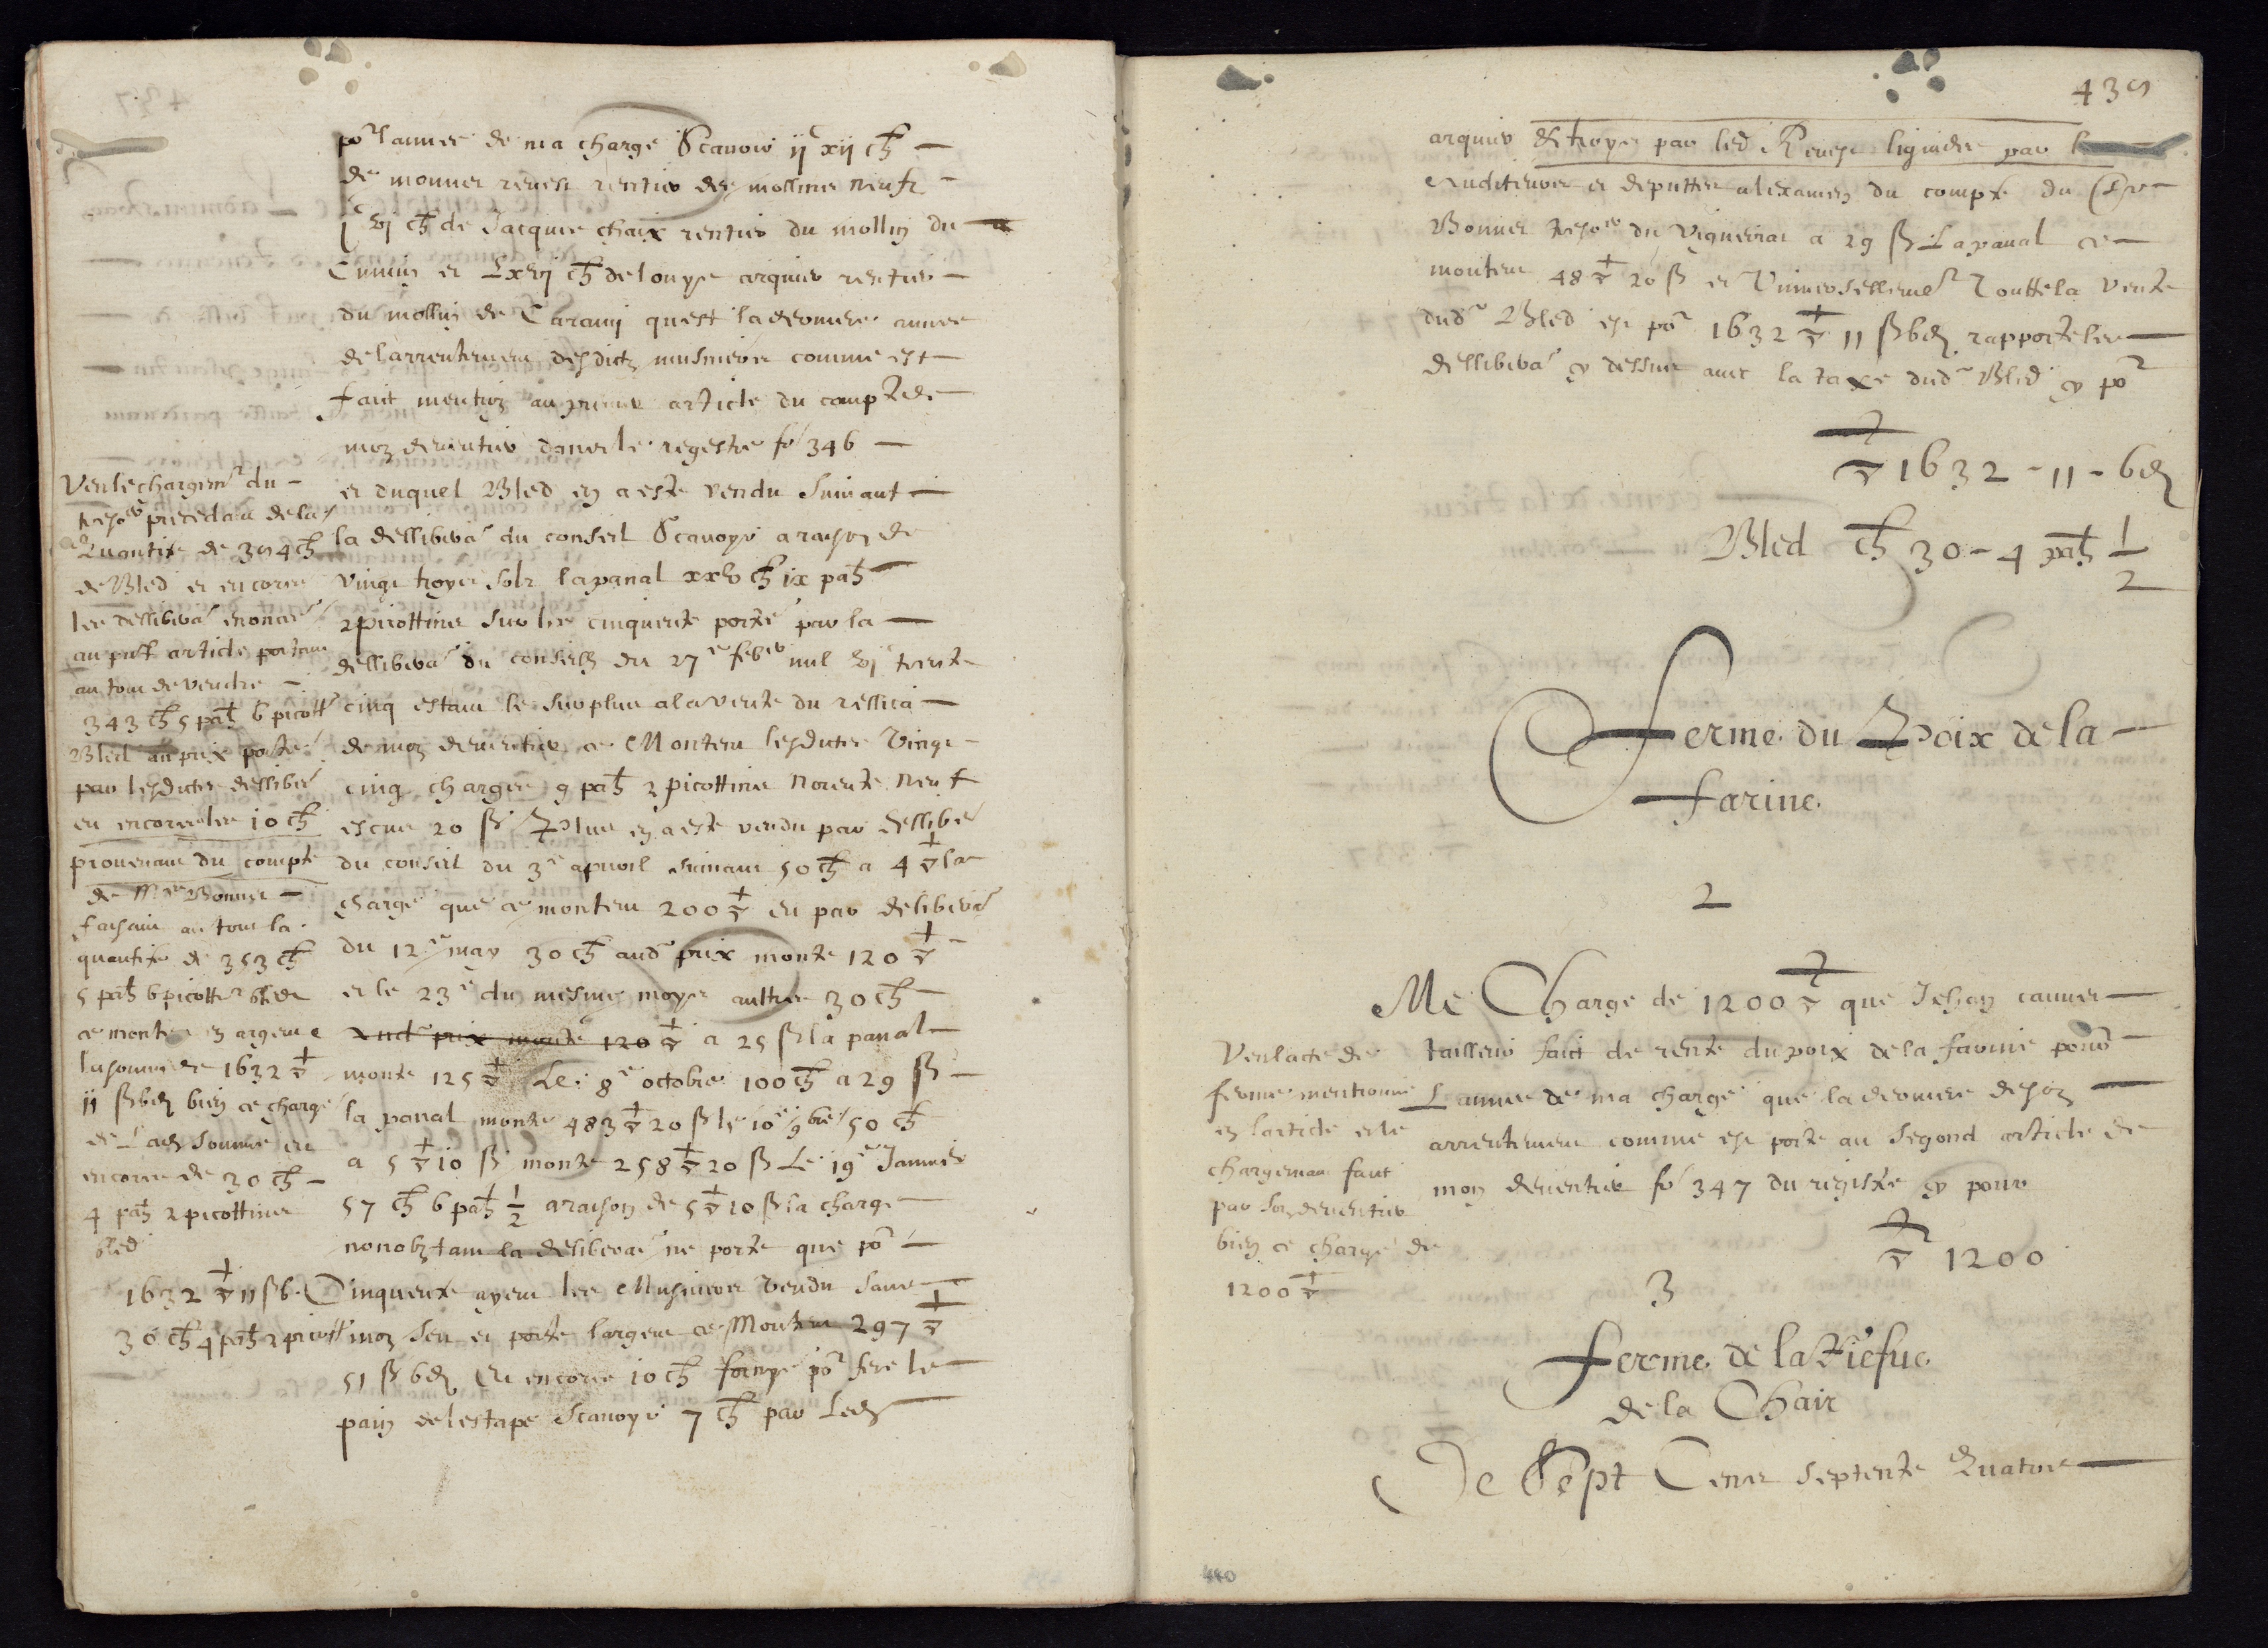 po^r lannee de ma charge Scavoir ii^c xii ch
de monnet revest rentier des mollins neufz
i^c vi ch de Jacques chaix rentier du mollin du
Cumin et Lxvii ch de louys arquier rentier
du mollin de Carami quest la derniere annee
de larrentement desdictz musniers comme est
faict mention au premier article du compte de
mon devantier dans le registre fo 346
et duquel Bled en a este vendu suivant
la delliberãn du conseil Scavoyr a raison de
vingt troys solz la panal xxv ch ix pañ
2 picottins sur les cinquente porté par la
delliberãn du conseilh du 27^e feb^er mil vi^c trente
cinq estant le surplus a la vente du rellica
de mon devantier ce Montent lesdites vingt
cinq charges 9 pañ 2 picottins Norente neuf
escus 20 ß Plus en a este vendu par dellibe
du conseil du 3^e apvril suivant 50 ch a 4 ▽ la
charge que ce montent 200 ▽ et par deliberãn
du 12^e may 30 ch aud prix monte 120 ▽
et le 23^e du mesme moys aultres 30 ch
Aud prix monte 120 ▽ a 25 ß la panal
monte 125 ▽ Le 8^e octobre 100 ch a 29 ß
la panal monte 483 ▽ 20 ß le 10^e 9bre 50 ch
a 5 ▽ 10 ß monte 258 ▽ 20 ß Le 19^e Janvier
57 ch 6 pañ 1/2 a raison de 5 ▽ 10 ß la charge
nonobztant la deliberãn ne porte que po^r
Cinquente ayent les Musniers vendu sans
mon seu et porte largent ce Montent 297 ▽
51 ß 6 d Et encores 10 ch po^r fere le
pain de lestape Scavoyr 7 ch par Led
Veu le chargem^t du
treso^er precedent de la
Quantite de 394 ch
de Bled et encores
les delliberãn enonces
au p^nt article portant
au tout de vendre
343 ch 5 pañ 6 picott
Bled au prix porte
par lesdites delliber
et encores les 10 ch
provenant du compte
de M^re Bonnet
faisant au tout la
quantite de 353 ch
5 pañ 6 picottins bled
ce monte en argent
la somme de 1632 ▽
11 ß 6 d bien ce charge
de Lad somme et
encores de 30 ch
4 pañ 2 picottins
bled
1632 ▽ 11 ß 6
30 ch 4 pañ 2 picott
439
arquier et troys par led Revest liquides par
Auditeurs et deputtes a lexamen du compte du S^r
Bonnet treso^er du vigueirat a 29 ß La panal ce
montent 48 ▽ 20 ß et Universellem^t Toutte la vente
dud Bled est po^r 1632 ▽ 11 ß 6 d rapporte les
delliberãn cy dessus avec la taxe dud Bled cy po^r
▽ 1632 - 11 - 6 d
Bled ch 30 - 4 pañ 1/2
Ferme du Poix de la
farine
2
Me Charge de 1200 ▽ que Jehan cauvet
tailleur faict de rente du poix de la farine pour
Lannee de ma charge que la derniere de son
arrentement comme est porte au segond article de
mon devantier fo 347 du registre cy pour
▽ 1200
Veu lacte de
ferme mentionné
en larticle et le
chargemant faict
par son devantier
bien ce charge de
1200 ▽
3
Ferme de la Riefve
de la Chair
De Sept Cens septente Quatre
440